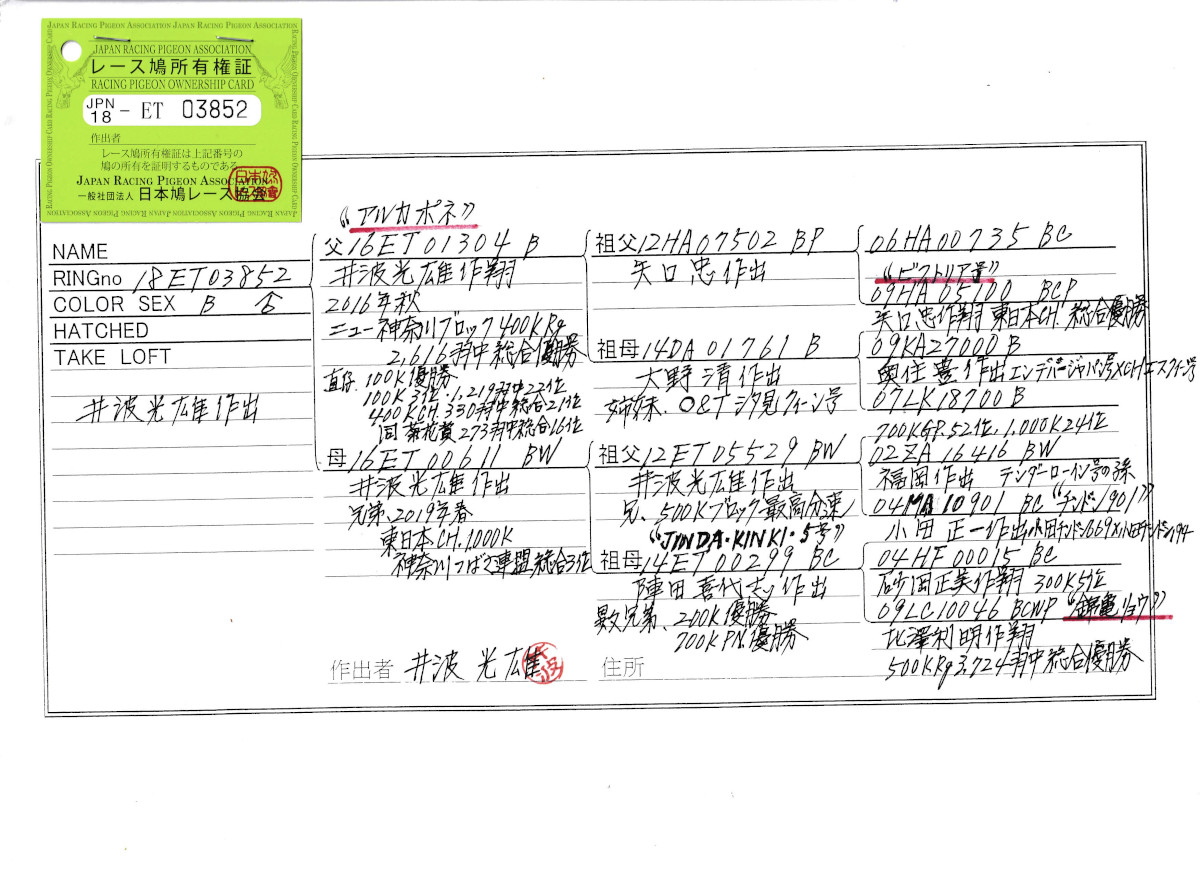 JAPAN RACING PIGEON ASSOCIATION JAPAN RACING PIGEON ASSOCIATION
JAPAN RACING PIGEON ASSOCIATION
レース鳩所有権証
RACING PIGEON OWNERSHIP CARD
JPN 18 - ET 03852
作出者
レース鳩所有権証は上記番号の
鳩の所有を証明するものである
JAPAN RACING PIGEON ASSOCIATION
一般社団法人 日本鳩レース協会
NAME
RINGno 18ET03852
COLOR SEX B ♂
HATCHED
TAKE LOFT
井波光雄作出
“アルカポネ”
父16ET01304 B
井波光雄作翔
2016年秋
ニュー神奈川ブロック400KRg
2,616羽中総合優勝
直仔、100K優勝
100K3位・1,219羽中22位
400KCH.330羽中総合21位
同菊花賞273羽中総合16位
母16ET00611 BW
井波光雄作出
兄弟、2019年春
東日本CH.1000K
神奈川つばさ連盟総合3位
作出者 井波 光雄
祖父12HA07502 BP
矢口忠作出
祖母14DA01761 B
大野清作出
姉妹、O&T 汐見クィーン号
祖父12ET05529 BW
井波光雄作出
兄、500Kブロック最高分速
“JINDA・KINKI・5号”
祖母14ET00299 BC
陣田喜代志作出
異父兄弟、200K優勝
700KPN.優勝
住所
06HA00735 BC
“ビクトリア号”
09HA05100 BCP
矢口忠作翔 東日本CH.総合優勝
09KA27000 B
奥住豊作出エンデバージャパン号×CHエスクィン号
07LK18700 B
700KGP.52位、1,000K24位
02ZA16416 BW
福岡作出 テンダーローイン号の孫
04MA10901 BC “チンドン901”
小田正一作出
04HF00015 BC
砂岡正美作翔 300K5位
09LC10046 BCWP “錦竜リョウ”
比澤利明作翔
500KRg3,724羽中総合優勝